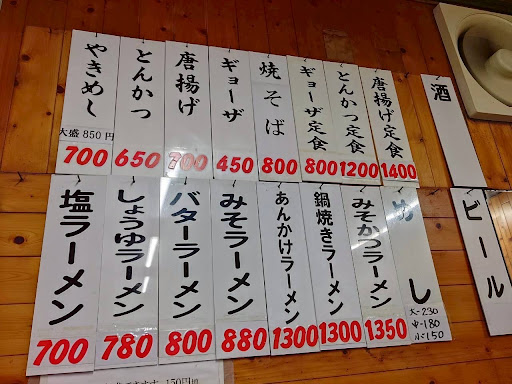 やきめし
大盛850円
700
とんかつ
650
唐揚げ
700
ギョーザ
450
焼そば
800
ギョーザ定食
800
とんかつ定食
1200
唐揚げ定食
1400
酒
塩ラーメン
700
しょうゆラーメン
780
バターラーメン
800
みそラーメン
880
あんかけラーメン
1300
鍋焼きラーメン
1300
みそかつラーメン
1350
めし
大-230
中-180
小150
ビール
150円